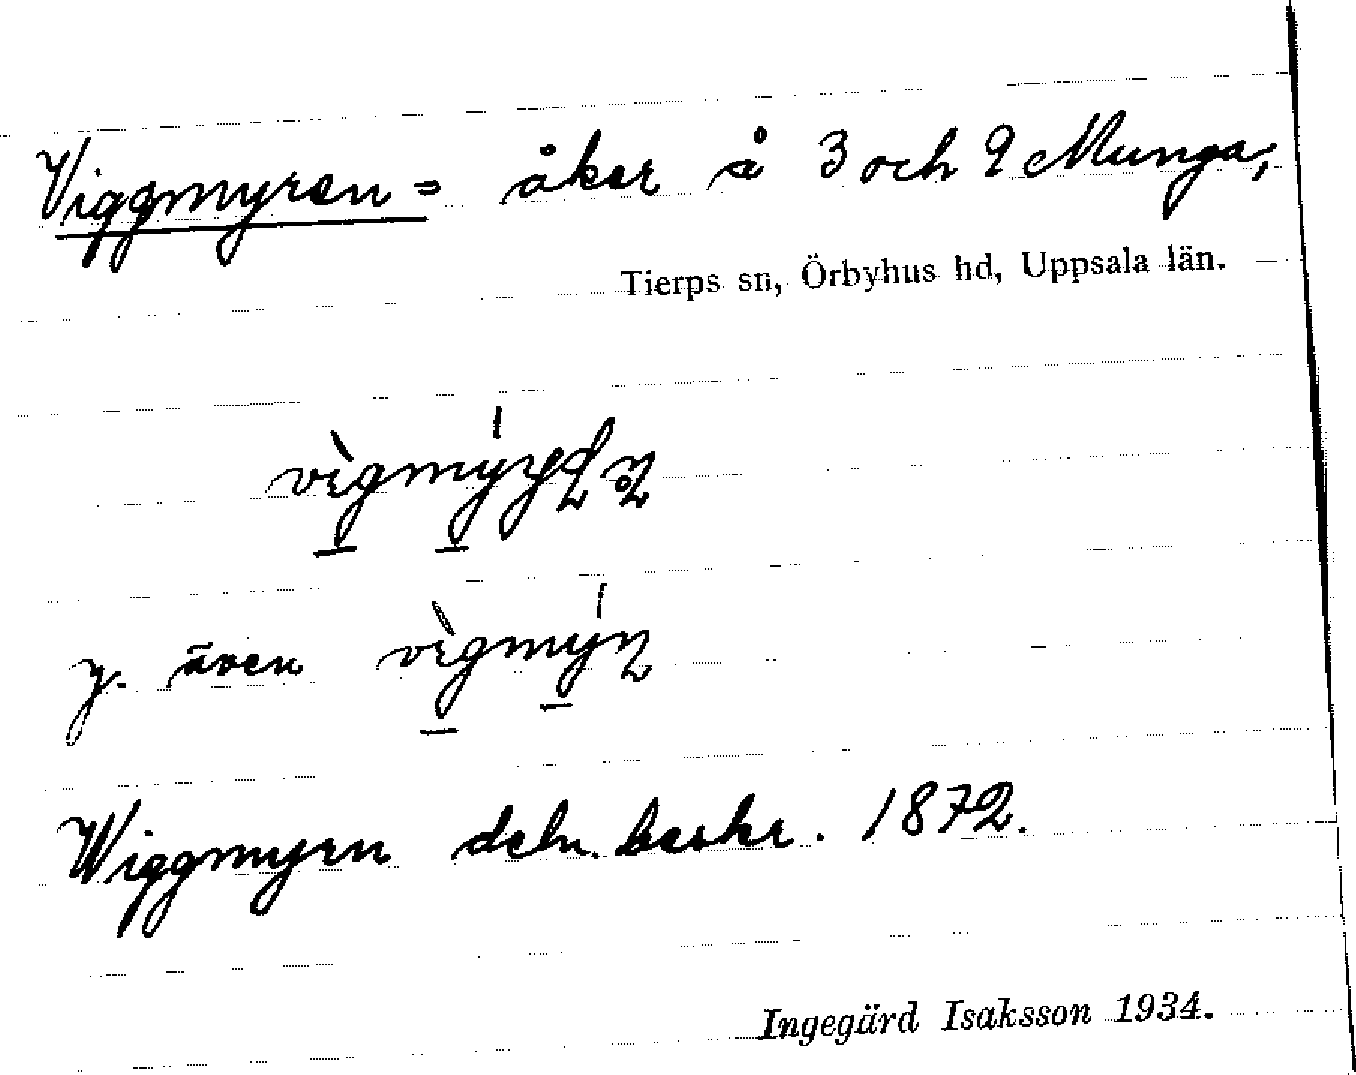 Viggmyren = åker å 3 och 9 Munga,
Tierps sn, Örbyhus hd, Uppsala län.
y. även
Wiggmyrn deln. beskr. 1872.
Ingegärd Isaksson 1934.